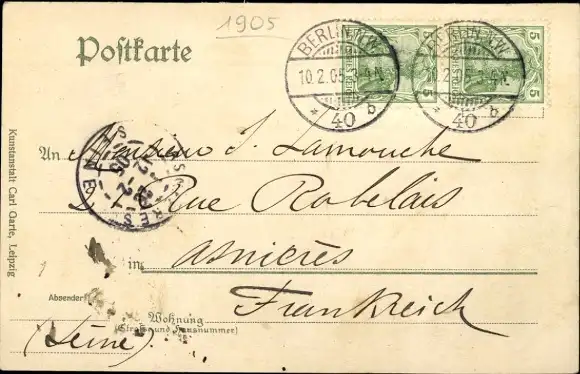 1905
Postkarte
BERLIN N.W.
10.2.05.
* 40 b
BERLIN N.W.
* 40 b
5 5
5 5
An Monsieur J. Lamouche
Rue Rabelais
in Asnières
Absender
Frankreich
Wohnung
(Straße und Hausnummer)
(Seine).
Kunstanstalt Carl Garte, Leipzig